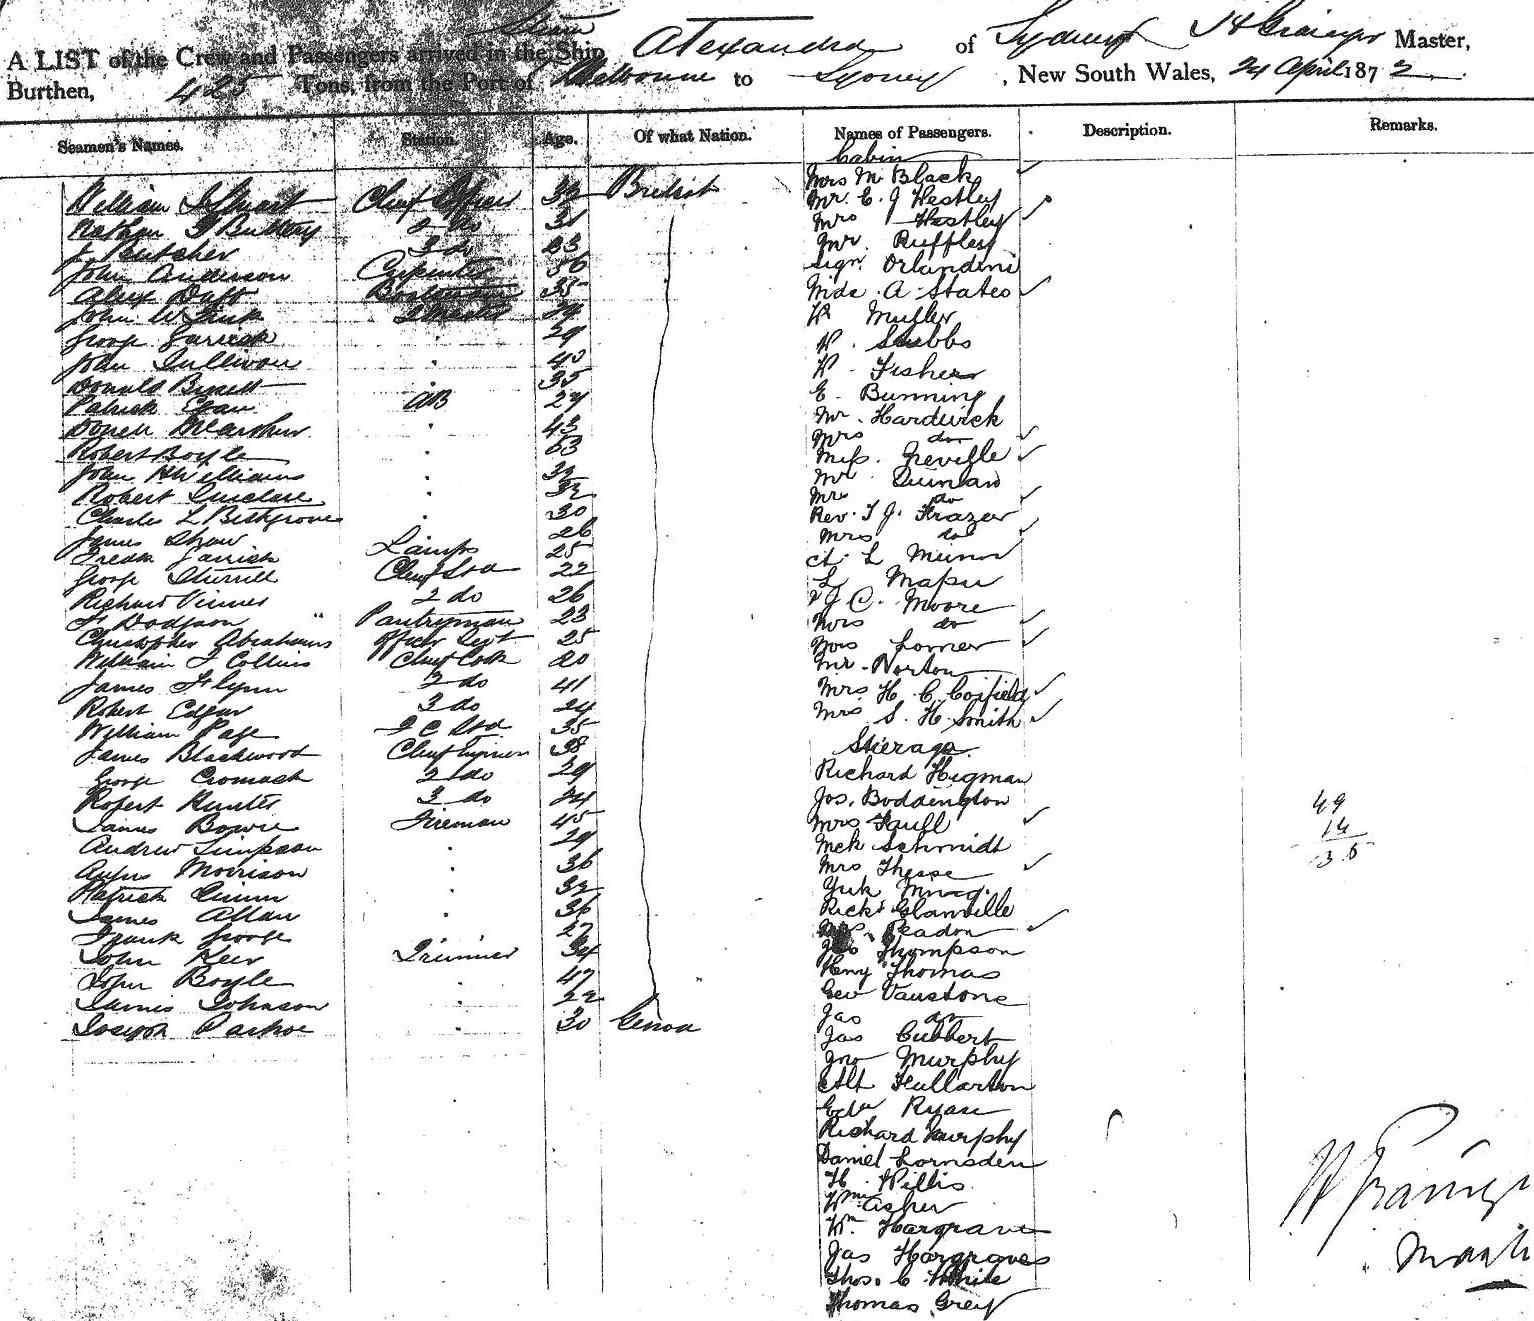 Steam
A LIST of the Crew and Passengers arrived in the Ship Alexandra of Sydney H Grainger Master,
Burthen, 425 Tons, from the Port of Melbourne to Sydney, New South Wales, 24 April 1872
Seamen's Names. Station. Age. Of what Nation. Names of Passengers. Description. Remarks.
William Stuart Chief Officer 32 British
2 do 31
J. Butcher 3 do 23
John Anderson Carpenter 36
Alex Daft Boatswain 35
John
George Garrick 29
John Sullivan 40
Donald 35
Patrick Egan AB 27
McArthur 43
Robert Boyle 53
John H Williams 32
Robert Sinclair 32
Charles L Bestgrove 30
James Shaw 26
Fredk Garrick Lamps 25
George Chief Std 22
Richard Vinner 2 do 26
F. Dodgson Pantryman 23
Christopher Abrahams Officer 25
William J Collins Chief Cook 20
James Flynn 2 do 41
Robert Edgar 3 do 24
William Page Std 35
James Blackwood Chief Engineer 38
George Cromack 2 do 29
Robert Hunter 3 do 24
James Bowie Fireman 45
Andrew Simpson 29
Angus Morrison 36
Patrick 32
James Allan 36
Frank George 27
John Keir Trimmer 34
John Boyle 47
James Johnson 22
Joseph 30 Genoa
Cabin
Mrs M. Black
Mr. E. J Hestley
Mrs Hestley
Mr. Ruffley
Sign. Orlandini
Mde. A. States
W Muller
W. Stubbs
W. Fisher
E. Bunning
Mr. Hardwick
Mrs do
Miss. Greville
Mr Quinlan
Mrs do
Rev. T J. Frazer
Mrs do
L Munn
L
J C. Moore
Mrs do
Mrs Lorner
Mr. Norton
Mrs H. C. Coifield
Mrs S. H. Smith
Steerage
Richard Higman
Jos. Boddington
Mrs Faull
Mck Schmidt
Mrs
Yuk
Richd Glanville
Mrs. Readon
Jas Thompson
Henry Thomas
Geo Vanstone
Jas do
Jas Cuthbert
Jno Murphy
Alx Fullarton
Edw Ryan
Richard Murphy
Daniel Lornsden
H. Willis
Wm Asher
Wm Hargrave
Jas Hargraves
Thos. C White
Thomas Grey
49
14
35
H Grainger
Master